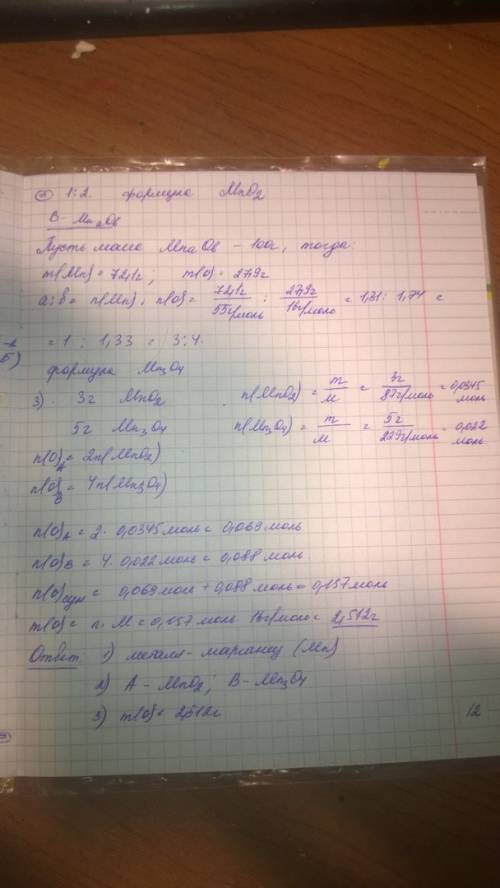 1:2. формула MnO₂
B - MnaOв
Пусть масса MnaOв - 100г, тогда:
m(Mn) = 72,1г; m(O) = 27,9г
a:b = n(Mn) : n(O) = 72,1г/55г/моль : 27,9г/16г/моль = 1,31 : 1,74 =
= 1 : 1,33 = 3:4.
формула Mn₃O₄
3). 3г MnO₂ n(MnO₂) = m/M = 3г/87г/моль = 0,0345 моль
5г Mn₃O₄ n(Mn₃O₄) = m/M = 5г/229г/моль = 0,022 моль
n(O)A = 2n(MnO₂)
n(O)B = 4n(Mn₃O₄)
n(O)A = 2 · 0,0345 моль = 0,069 моль
n(O)B = 4 · 0,022 моль = 0,088 моль
n(O)сум = 0,069 моль + 0,088 моль = 0,157 моль
m(O) = n · M = 0,157 моль · 16г/моль = 2,512г
Ответ: 1) металл - марганец (Mn)
2) A - MnO₂; B - Mn₃O₄
3) m(O) = 2,512г
12